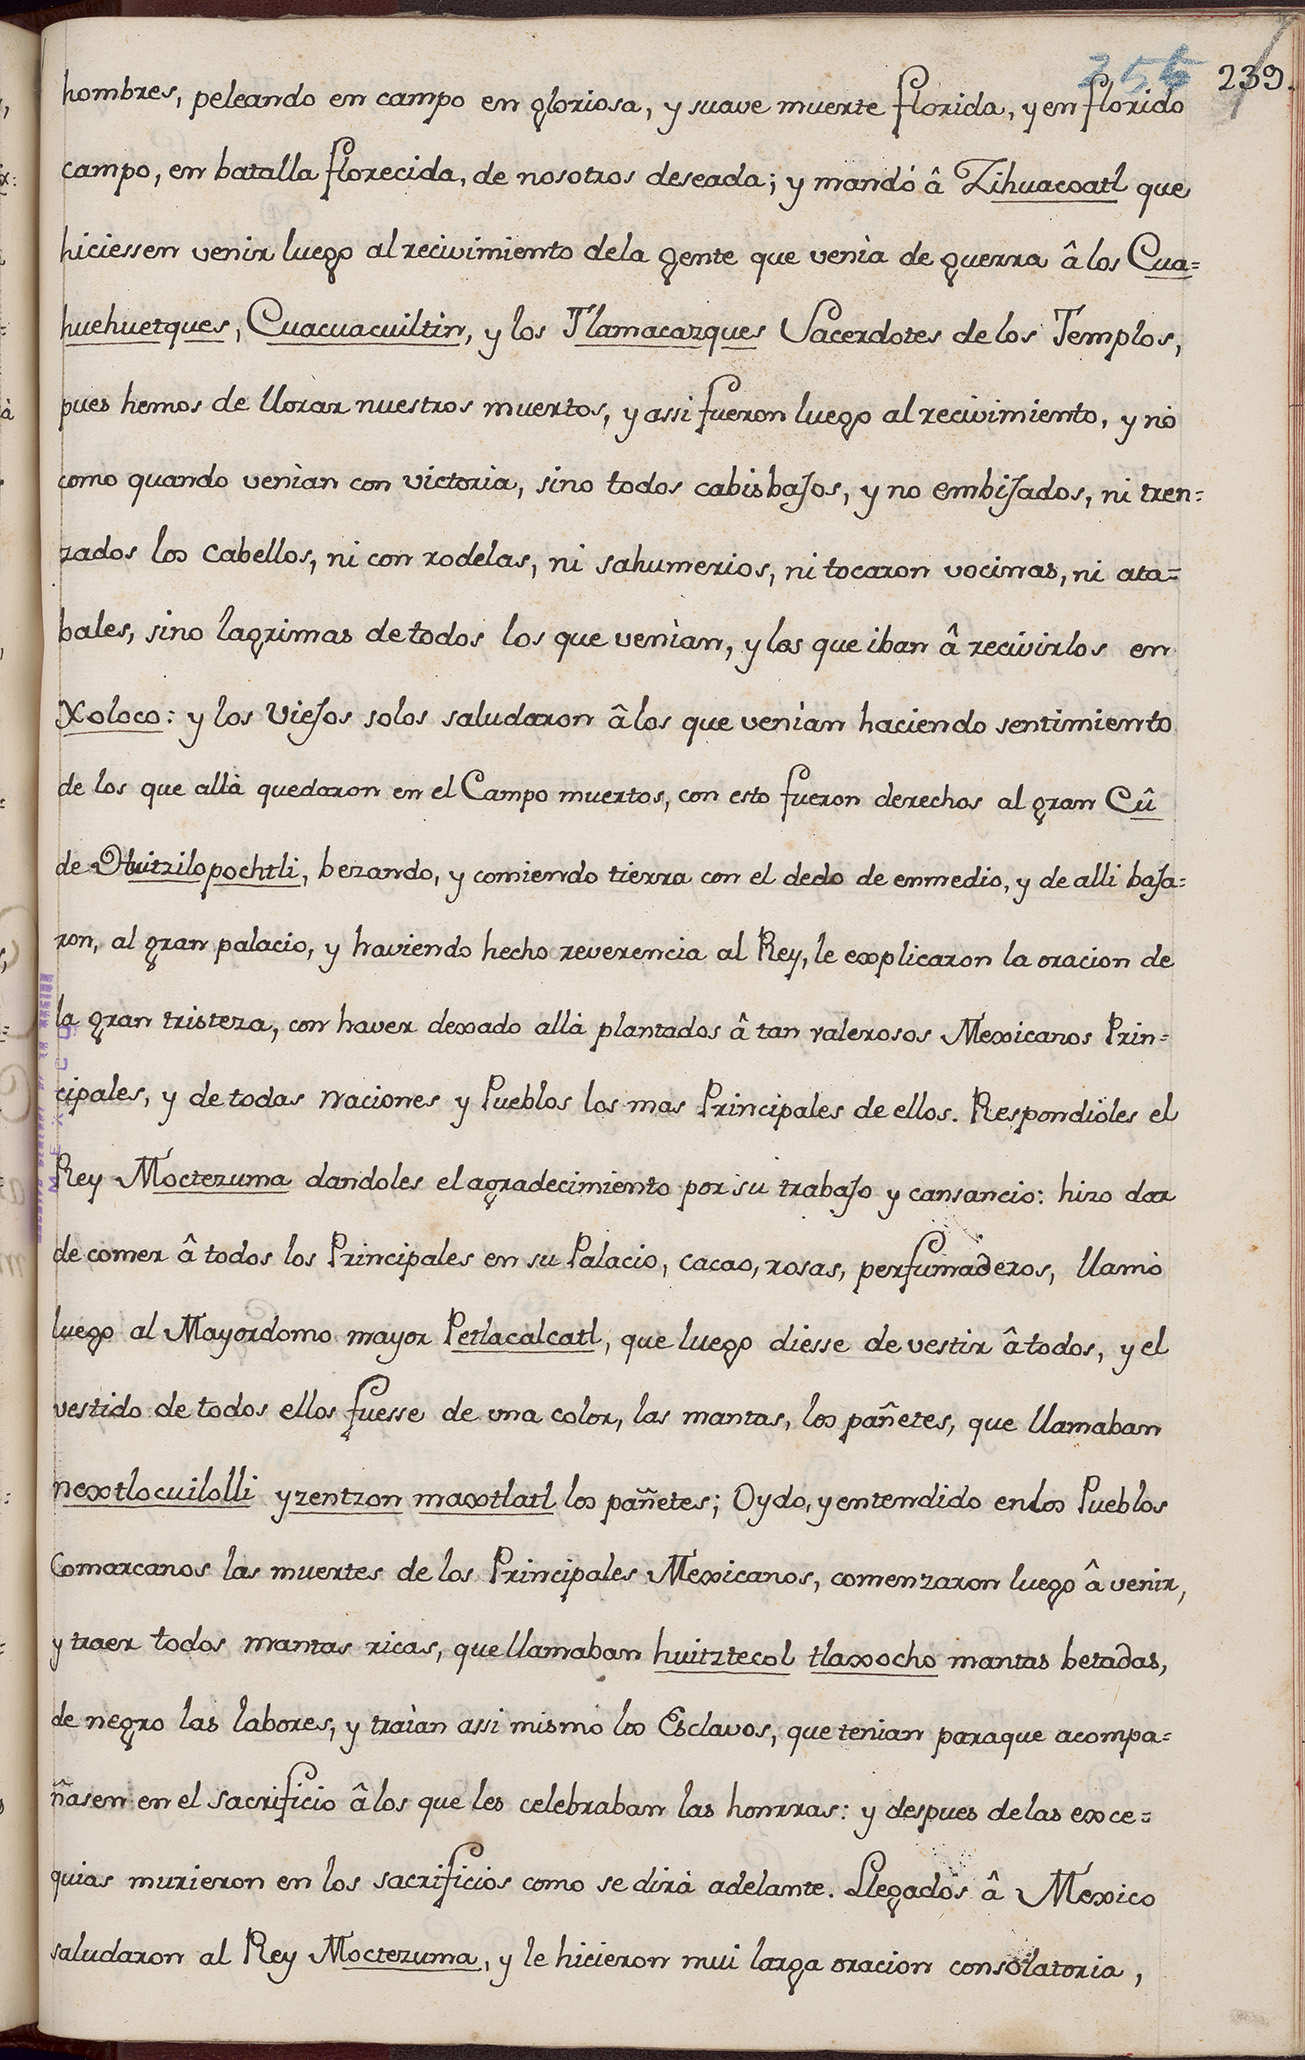 255 239.
hombres, peleando en campo en gloriosa, y suave muerte florida, y en florido
campo, en batalla florecida, de nosotros deseada; y mandó â Zihuacoatl que
hiciessen venir luego al recivimiento dela gente que venìa de guerra â los Cua=
huehuetques, Cuacuacuiltin, y los Tlamacazques Sacerdotes de los Templos,
pues hemos de llorar nuestros muertos, y assi fueron luego al recivimiento, y nò
como quando venìan con victoria, sino todos cabisbajos, y no embijados, ni tren=
zados los cabellos, ni con rodelas, ni sahumerios, ni tocaron vocinas, ni ata=
bales, sino lagrimas de todos los que venìan, y los que iban â recivirlos en
Xoloco: y los Viejos solos saludaron âlos que venìan haciendo sentimiento
de los que allà quedaron en el Campo muertos, con esto fueron derechos al gran Cû
de Huitzilopochtli, bezando, y comiendo tierra con el dedo de enmedio, y de alli baja=
ron, al gran palacio, y haviendo hecho reverencia al Rey, le explicaron la oracion de
la gran tristeza, con haver dexado allà plantados â tan valerosos Mexicanos Prin=
cipales, y de todas Naciones y Pueblos los mas Principales de ellos. Respondiòles el
Rey Moctezuma dandoles el agradecimiento por su trabajo y cansancio: hizo dar
de comer â todos los Principales en su Palacio, cacao, rosas, perfumaderos, llamò
luego al Mayordomo mayor Petlacalcatl, que luego diesse de vestir â todos, y el
vestido de todos ellos fuesse de una color, las mantas, los pañetes, que llamaban
nextlocuilolli yzentzon maxtlatl los pañetes; Oydo, y entendido en los Pueblos
Comarcanos las muertes de los Principales Mexicanos, comenzaron luego â venir,
y traer todos mantas ricas, que llamaban huitztecol tlaxocho mantas betadas,
de negro las labores, y traìan assi mismo los Esclavos, que tenian paraque acompa=
ñasen en el sacrificio âlos que les celebraban las honrras: y despues delas exce=
quias murieron en los sacrificios como se dirà adelante. Llegados â Mexico
saludaron al Rey Moctezuma, y le hicieron mui larga oracion consolatoria,